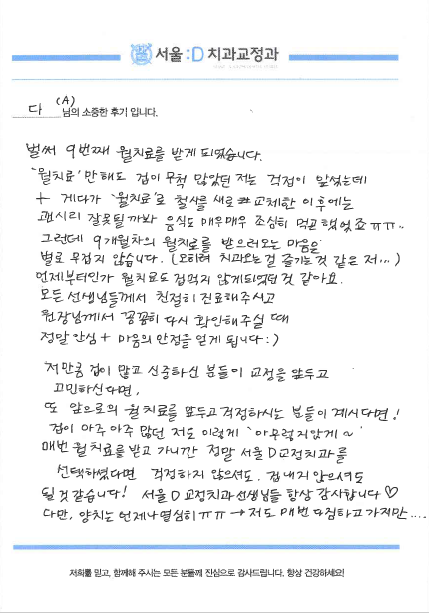 서울:D 치과교정과
다 (A) 님의 소중한 후기 입니다.
벌써 9번째 월치료를 받게 되었습니다.
'월치료' 만 해도 겁이 무척 많았던 저는 걱정이 앞섰는데
+ 게다가 '월치료'로 철사를 새로 교체한 이후에는
괜시리 잘못될까봐 음식도 매우매우 조심히 먹곤 했었죠 ㅠㅠ..
그런데 9개월차의 월치료를 받으러오는 마음은
별로 무겁지 않습니다. (오히려 치과오는걸 즐기는 것 같은 저...)
언제부터인가 월치료도 겁먹지 않게되었던 것 같아요.
모든 선생님들께서 친절히 진료해주시고
원장님께서 꼼꼼히 다시 확인해주실 때
정말 안심 + 마음의 안정을 얻게 됩니다 :)
저만큼 겁이 많고 신중하신 분들이 교정을 앞두고
고민하신다면,
또 앞으로의 월치료를 앞두고 걱정하시는 분들이 계시다면!
겁이 아주 아주 많던 저도 이렇게 '아무렇지않게~'
매번 월치료를 받고 가니깐 정말 서울D교정치과를
선택하셨다면 걱정하지 않으셔도, 겁내지 않으셔도
될 것 같습니다! 서울D교정치과 선생님들 항상 감사합니다♡
다만, 양치는 언제나 열심히 ㅠㅠ → 저도 매번 다짐하고 가지만....
저희를 믿고, 함께해 주시는 모든 분들께 진심으로 감사드립니다. 항상 건강하세요!